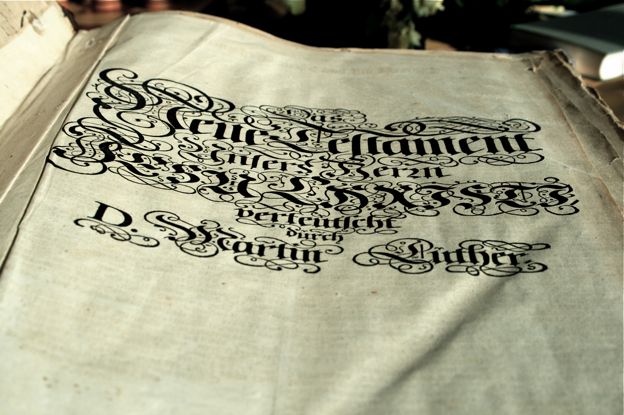 Das
Neue Testament
Unsers Herrn
JESU CHRISTI,
verteutscht
durch
D. Martin Luther.